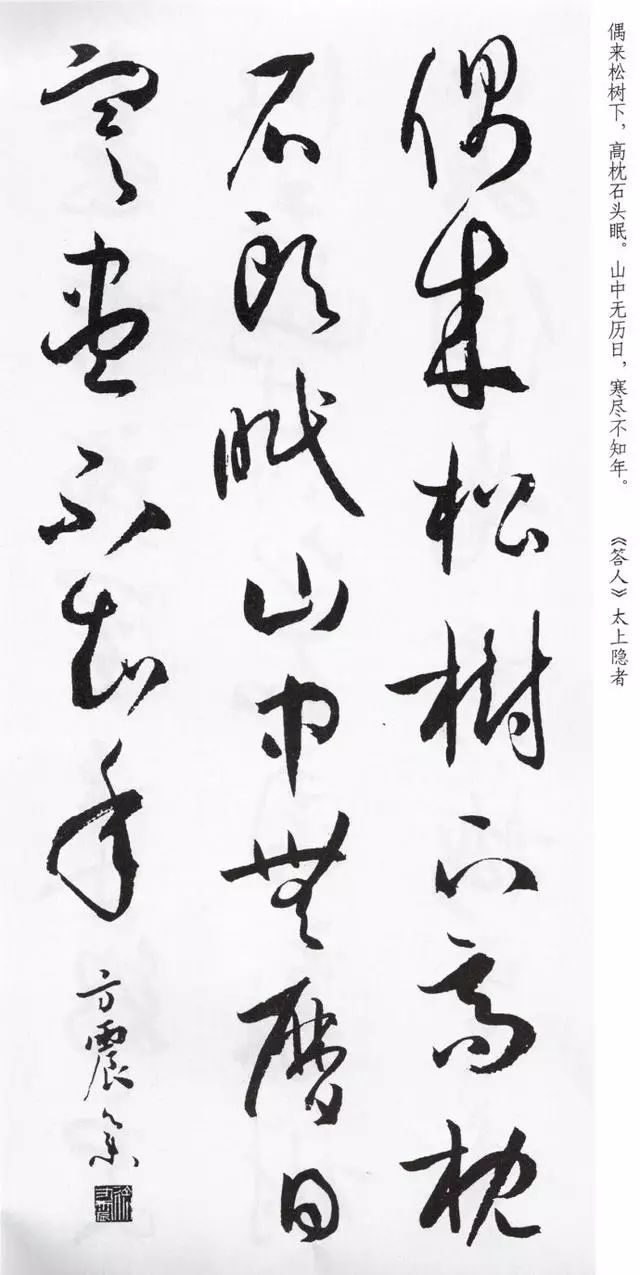 偶来松树下，高枕石头眠。山中无历日，寒尽不知年。 《答人》太上隐者
偶来松樹下高枕
石头眠山中無曆日
寒尽不知年
方震篆